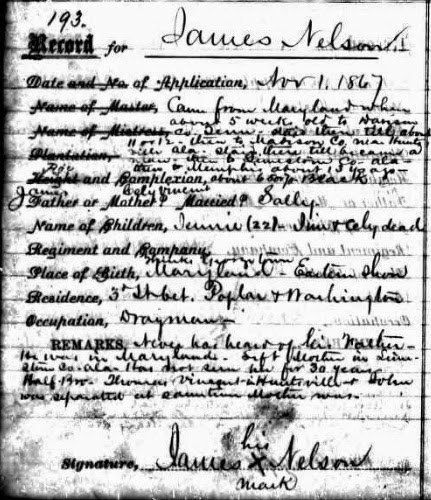 193.
Record for James Nelson
Date and No. of Application, Nov 1, 1867
Name of Master, Came from Maryland when
about 5 weeks old to Dawson
Name of Mistress, Co. Tenn - stayed there till about
11 or 12 - then to Madison Co near Hunts
Plantation, ville Ala - Stayed there till became a
man then to Limestone Co - Ala
then to Memphis about 13 years
Height and Complexion, about 6 60/70 Black
James
Father or Mother? Married? Sally
Name of Children, Jennie (22) - Jim & Cely dead
Regiment and Company,
Place of Birth, Maryland - Eastern Shore
Residence, 3d St. bet. Poplar & Washington
Occupation, Drayman
REMARKS, Never has heard of his Father -
He was in Maryland - Left Mother in Lime-
stone Co - Ala - Has not seen her for 30 years
Half Bro. Thomas in Huntsville & John
was separated at same time Mother was -
his
Signature, James X Nelson
mark